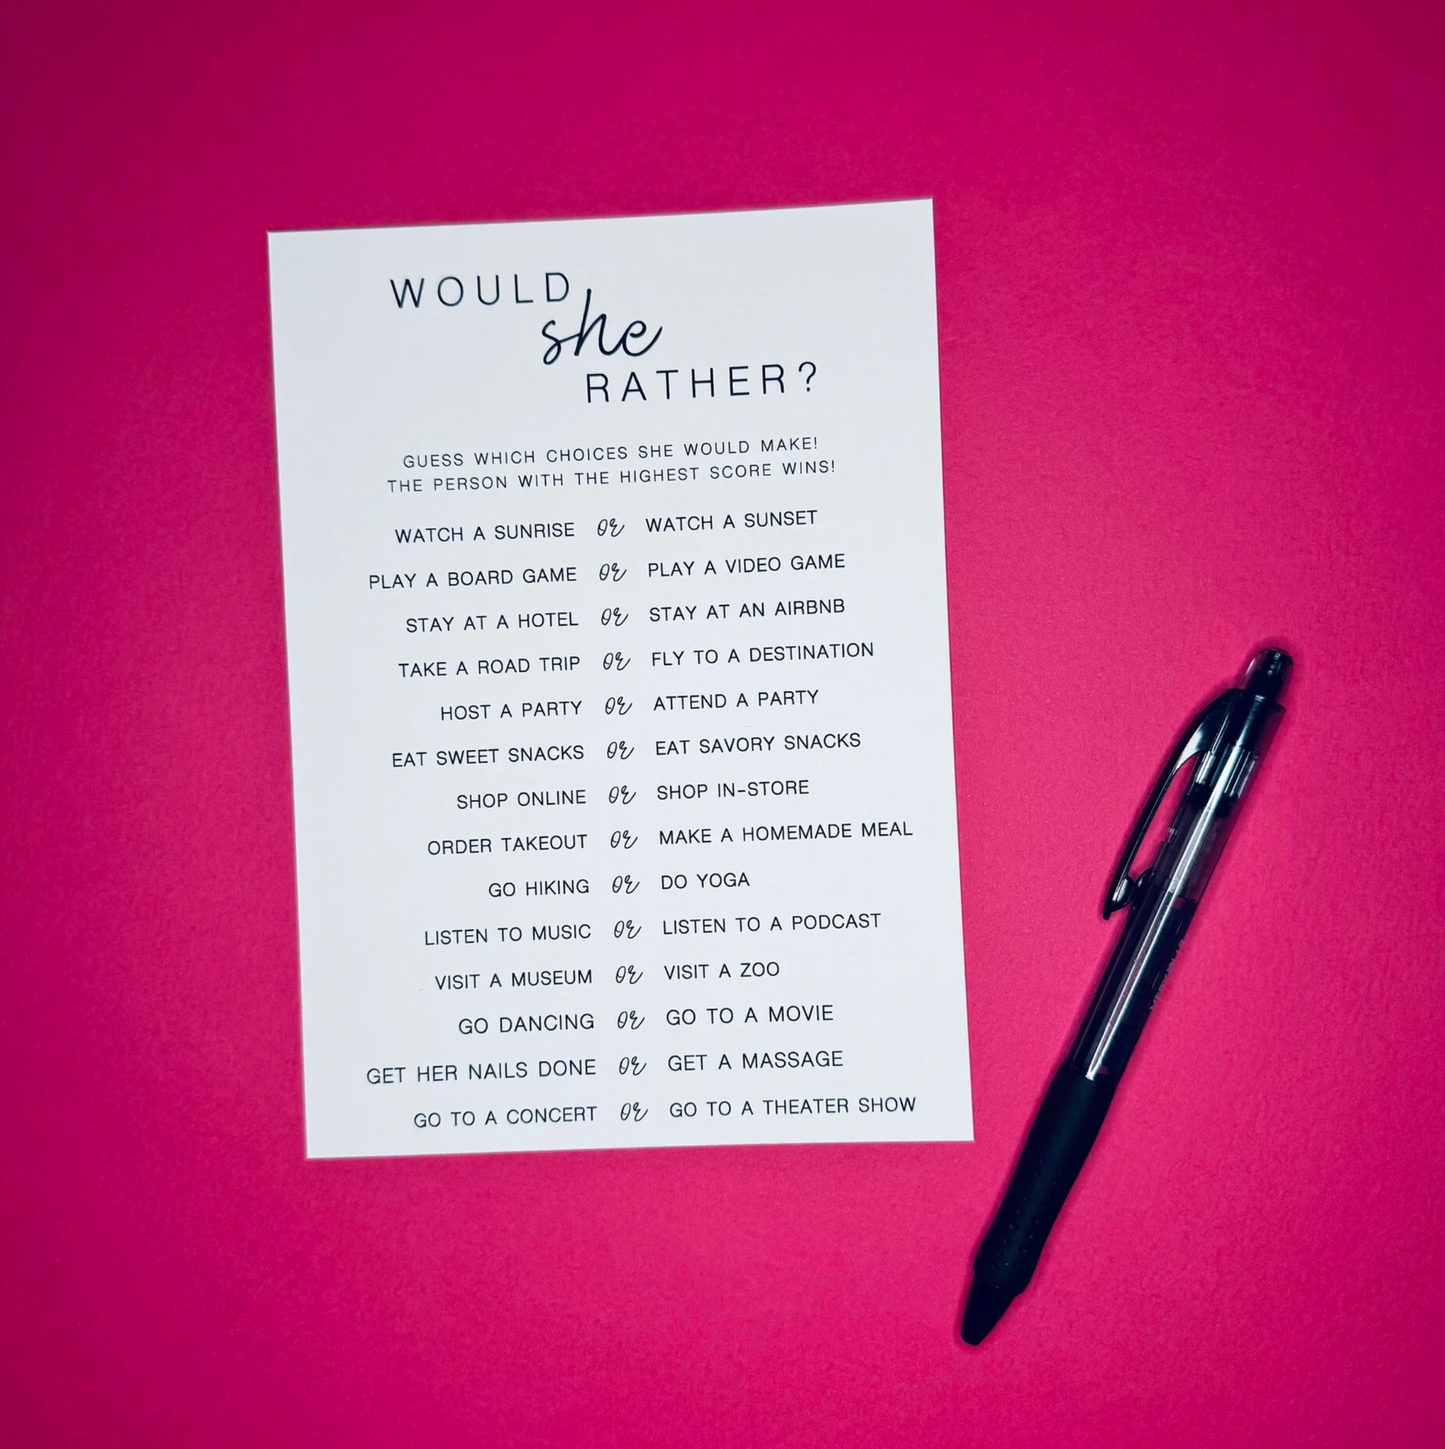 WOULD
she
RATHER?
GUESS WHICH CHOICES SHE WOULD MAKE!
THE PERSON WITH THE HIGHEST SCORE WINS!
WATCH A SUNRISE or WATCH A SUNSET
PLAY A BOARD GAME or PLAY A VIDEO GAME
STAY AT A HOTEL or STAY AT AN AIRBNB
TAKE A ROAD TRIP or FLY TO A DESTINATION
HOST A PARTY or ATTEND A PARTY
EAT SWEET SNACKS or EAT SAVORY SNACKS
SHOP ONLINE or SHOP IN-STORE
ORDER TAKEOUT or MAKE A HOMEMADE MEAL
GO HIKING or DO YOGA
LISTEN TO MUSIC or LISTEN TO A PODCAST
VISIT A MUSEUM or VISIT A ZOO
GO DANCING or GO TO A MOVIE
GET HER NAILS DONE or GET A MASSAGE
GO TO A CONCERT or GO TO A THEATER SHOW